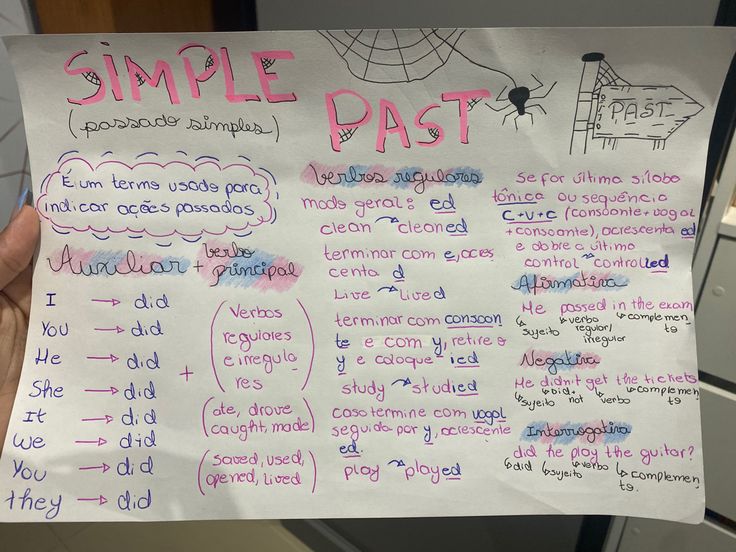 SIMPLE
PAST
(passado simples)
PAST
É um termo usado para
indicar ações passadas
Auxiliar + verbo
principal
I → did
You → did
He → did
She → did
It → did
We → did
You → did
they → did
+
(Verbos
regulares
e irregula
res)
(ate, drove
caught, made)
(saved, used,
opened, lived)
Verbos regulares
modo geral: ed
clean → cleaned
terminar com e, acres
centa d
Live → lived
terminar com consoan
te e com y, retire o
y e coloque ied
study → studied
caso termine com vogal
seguida por y, acrescente
ed.
play → played
Se for última sílaba
tônica ou sequência
C+V+C (consoante+vogal
+consoante), acrescenta ed
e dobre a última
control → controlled
Afirmativa
He passed in the exam
sujeito verbo regular/irregular complemen
to
Negativa
He didn't get the tickets
sujeito Did+not verbo complemen
to
Interrogativa
did he play the guitar?
did sujeito verbo complemen
to.